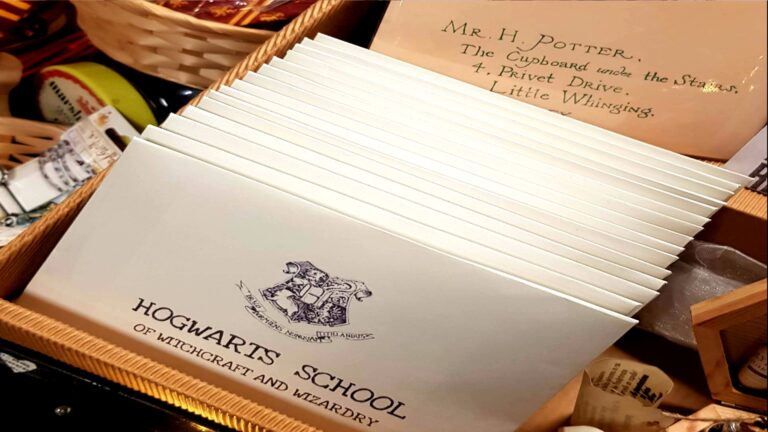 Mr. H. Potter,
The Cupboard under the Stairs,
4, Privet Drive,
Little Whinging,
HOGWARTS SCHOOL
OF WITCHCRAFT AND WIZARDRY